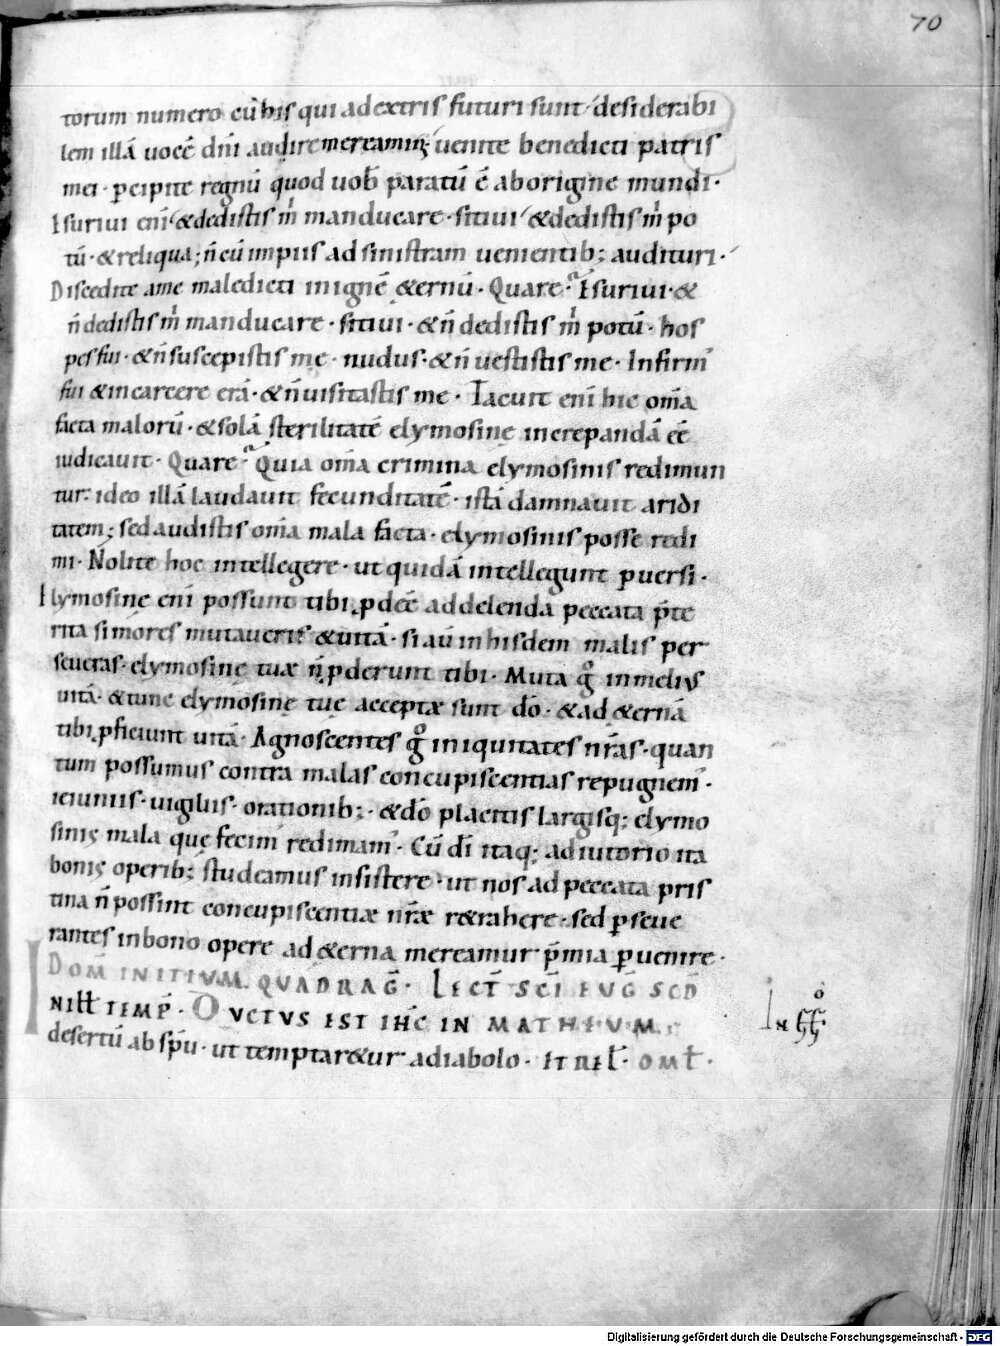 70
torum numero cū his qui ad extris futuri sunt desiderabi
lem illā uocē dn̄i audire mereamini; uenite benedicti patris
mei · ꝑcipite regnū quod uob̄ paratū ē ab origine mundi ·
Esuriui eni̅ & dedistis m̄ manducare · sitiui & dedistis m̄ po
tū · & reliqua; n̄ cū impiis ad sinistram uenientib; audituri ·
Discedite a me maledicti in ignē &ernū · Quare Esuriui · &
n̄ dedistis m̄ manducare · sitiui · & n̄ dedistis m̄ potū · hos
pes fui · & n̄ suscepistis me · nudus · & n̄ uestistis me · Infirm̄
fui & in carcere erā · & n̄ uisitastis me · Tacuit eni̅ hic om̄a
facta malorū · & solā sterilitatē elymosinę increpandā eē
iudicauit · Quare Quia om̄a crimina elymosinis redimun
tur · ideo illā laudauit fecunditatē · istā damnauit aridi
tatem; sed audistis om̄a mala facta · elymosinis posse redi
mi · Nolite hoc intellegere · ut quidā intellegunt ꝑuersi ·
Elymosine eni̅ possunt tibi ꝓdeē ad delenda peccata p̄te
rita si mores mutaueris & uitā · si aū in hisdem malis per
seueras · elymosinę tuæ n̄ ꝓderunt tibi · Muta gͦ in melius
uitā · & tunc elymosinę tuę acceptæ sunt dō · & ad &ernā
tibi ꝓficiunt uitā · Agnoscentes gͦ iniquitates nr̄as · quan
tum possumus contra malas concupiscentias repugnem̄ ·
ieiuniis · uigiliis · orationib; · & dō placitis largisq; elymo
sinis mala quę fecim̄ redimam̄ · Cū dī itaq; adiutorio ita
bonis operib; studeamus insistere · ut nos ad peccata pris
tina n̄ possint concupiscentiæ nr̄æ r&rahere · sed ꝑseue
rantes in bono opere ad &erna mereamur p̄mia ꝑuenire ·
DOM̄ INITIVM QVADRAḠ · LECT̄ SC̄I EVḠ SCD̄
IN ILL̄ TEMP̄ · DVCTVS EST IHC̄ IN MATHEVM
desertū ab sp̄u · ut temptar&ur a diabolo · ET REL̄ · OML̄ ·